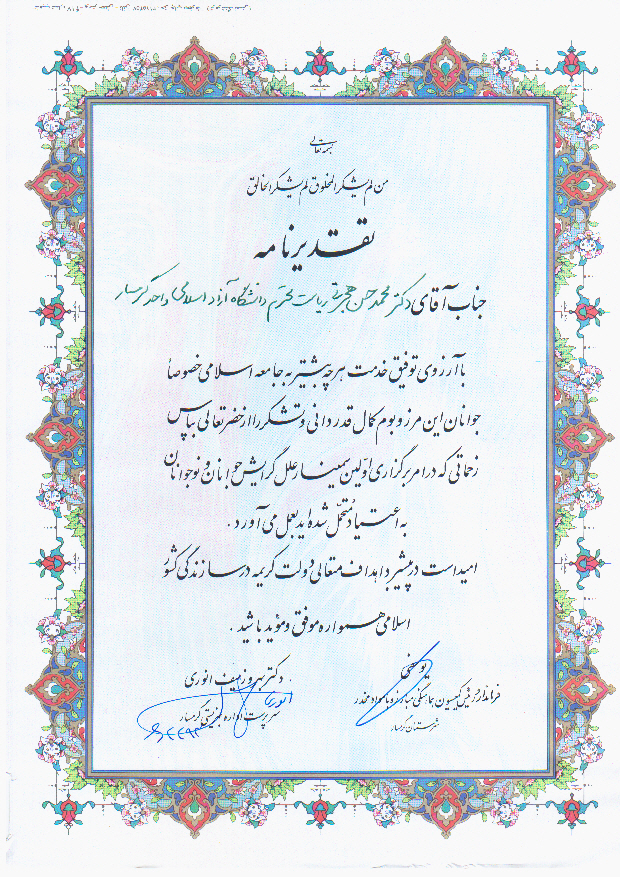 بسمه تعالی
من لم یشکر المخلوق لم یشکر الخالق
تقدیرنامه
جناب آقای دکتر محمد حسن هجرتی ریاست محترم دانشگاه آزاد اسلامی واحد گرمسار
با آرزوی توفیق خدمت هر چه بیشتر به جامعه اسلامی خصوصاً
جوانان این مرز و بوم کمال قدردانی و تشکر را از حضرتعالی بپاس
زحماتی که در امر برگزاری اولین سمینار علل گرایش جوانان و نوجوانان
به اعتیاد متحمل شده اید بعمل می آورد .
امید است در پیشبرد اهداف متعالی دولت کریمه در سازندگی کشور
اسلامی همواره موفق و مؤید باشید .
یوسفی
فرماندار و رئیس کمیسیون هماهنگی مبارزه با مواد مخدر
شهرستان گرمسار
دکتر بهروز نیف انوری
سرپرست اداره بهزیستی گرمسار